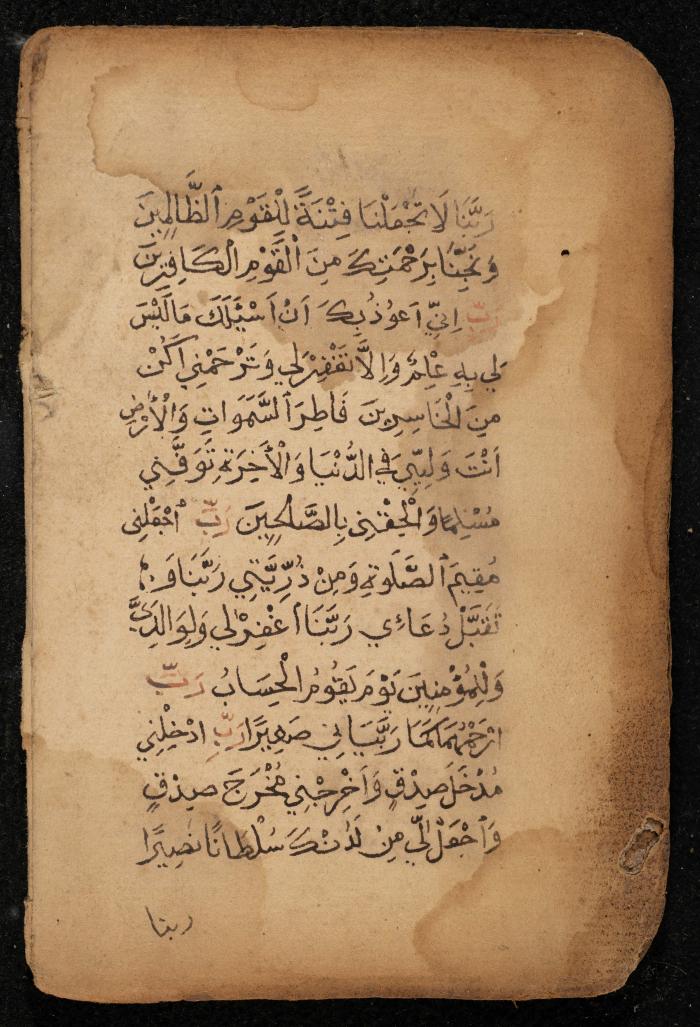 رَبَّنَا لَا تَجْعَلْنَا فِتْنَةً لِلْقَوْمِ ٱلظَّالِمِينَ
وَنَجِّنَا بِرَحْمَتِكَ مِنَ ٱلْقَوْمِ ٱلْكَافِرِينَ
رَبِّ اِنِّي اَعُوذُ بِكَ اَنْ اَسْئَلَكَ مَا لَيْسَ
لِي بِهِ عِلْمٌ وَاِلَّا تَغْفِرْ لِي وَتَرْحَمْنِي اَكُنْ
مِنَ الْخَاسِرِينَ فَاطِرَ ٱلسَّمَوَاتِ وَالْأَرْضِ
اَنْتَ وَلِيِّي فِي الدُّنْيَا وَالْأَخِرَةِ تَوَفَّنِي
مُسْلِمًا وَالْحِقْنِي بِالصَّالِحِينَ رَبِّ ٱجْعَلْنِي
مُقِيمَ ٱلصَّلَوةِ وَمِنْ ذُرِّيَّتِي رَبَّنَا وَ
تَقَبَّلْ دُعَاءِي رَبَّنَا ٱغْفِرْ لِي وَلِوَالِدَيَّ
وَلِلْمُؤْمِنِينَ يَوْمَ يَقُومُ الْحِسَابُ رَبِّ
ارْحَمْهُمَا كَمَا رَبَّيَانِي صَغِيرًا رَبِّ ادْخِلْنِي
مُدْخَلَ صِدْقٍ وَاَخْرِجْنِي مُخْرَجَ صِدْقٍ
وَٱجْعَلْ لِّي مِنْ لَدُنْكَ سُلْطَانًا نَصِيرًا
ربنا